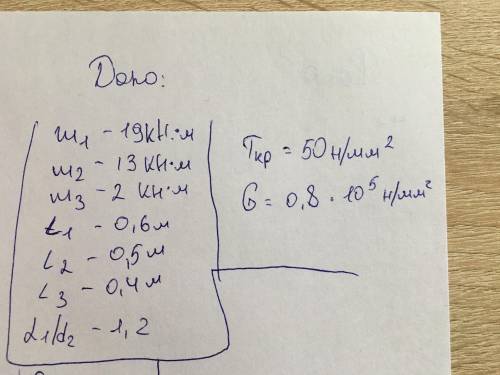 Дано:
m1 - 19 кН·м
m2 - 13 кН·м
m3 - 2 кН·м
L1 - 0,6 м
L2 - 0,5 м
L3 - 0,4 м
d1/d2 - 1,2
Tкр = 50 н/мм²
G = 0,8 · 10⁵ н/мм²